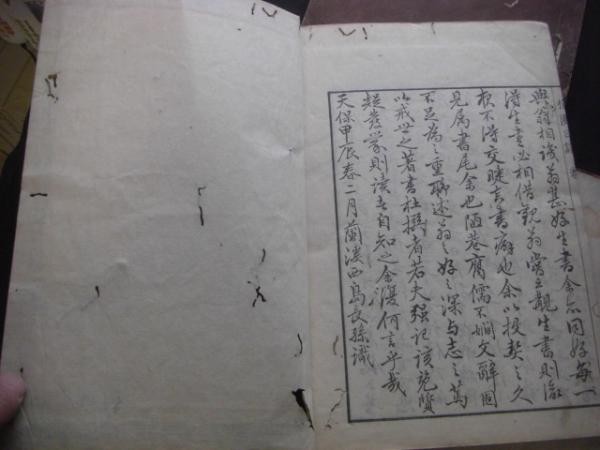 與翁相識翁甚好生書余亦同好每一
得生書必相借観翁嘗云観生書則
不得交睫書癖也余以投契之久
見属書尾余也陋巷腐儒不嫻文辭固
不足為之重聊述翁之好之深与志之篤
以戒世之著書杜撰者若夫强記該
則讀者自知之余復何言乎哉
天保甲辰春二月蘭溪西島長孫識